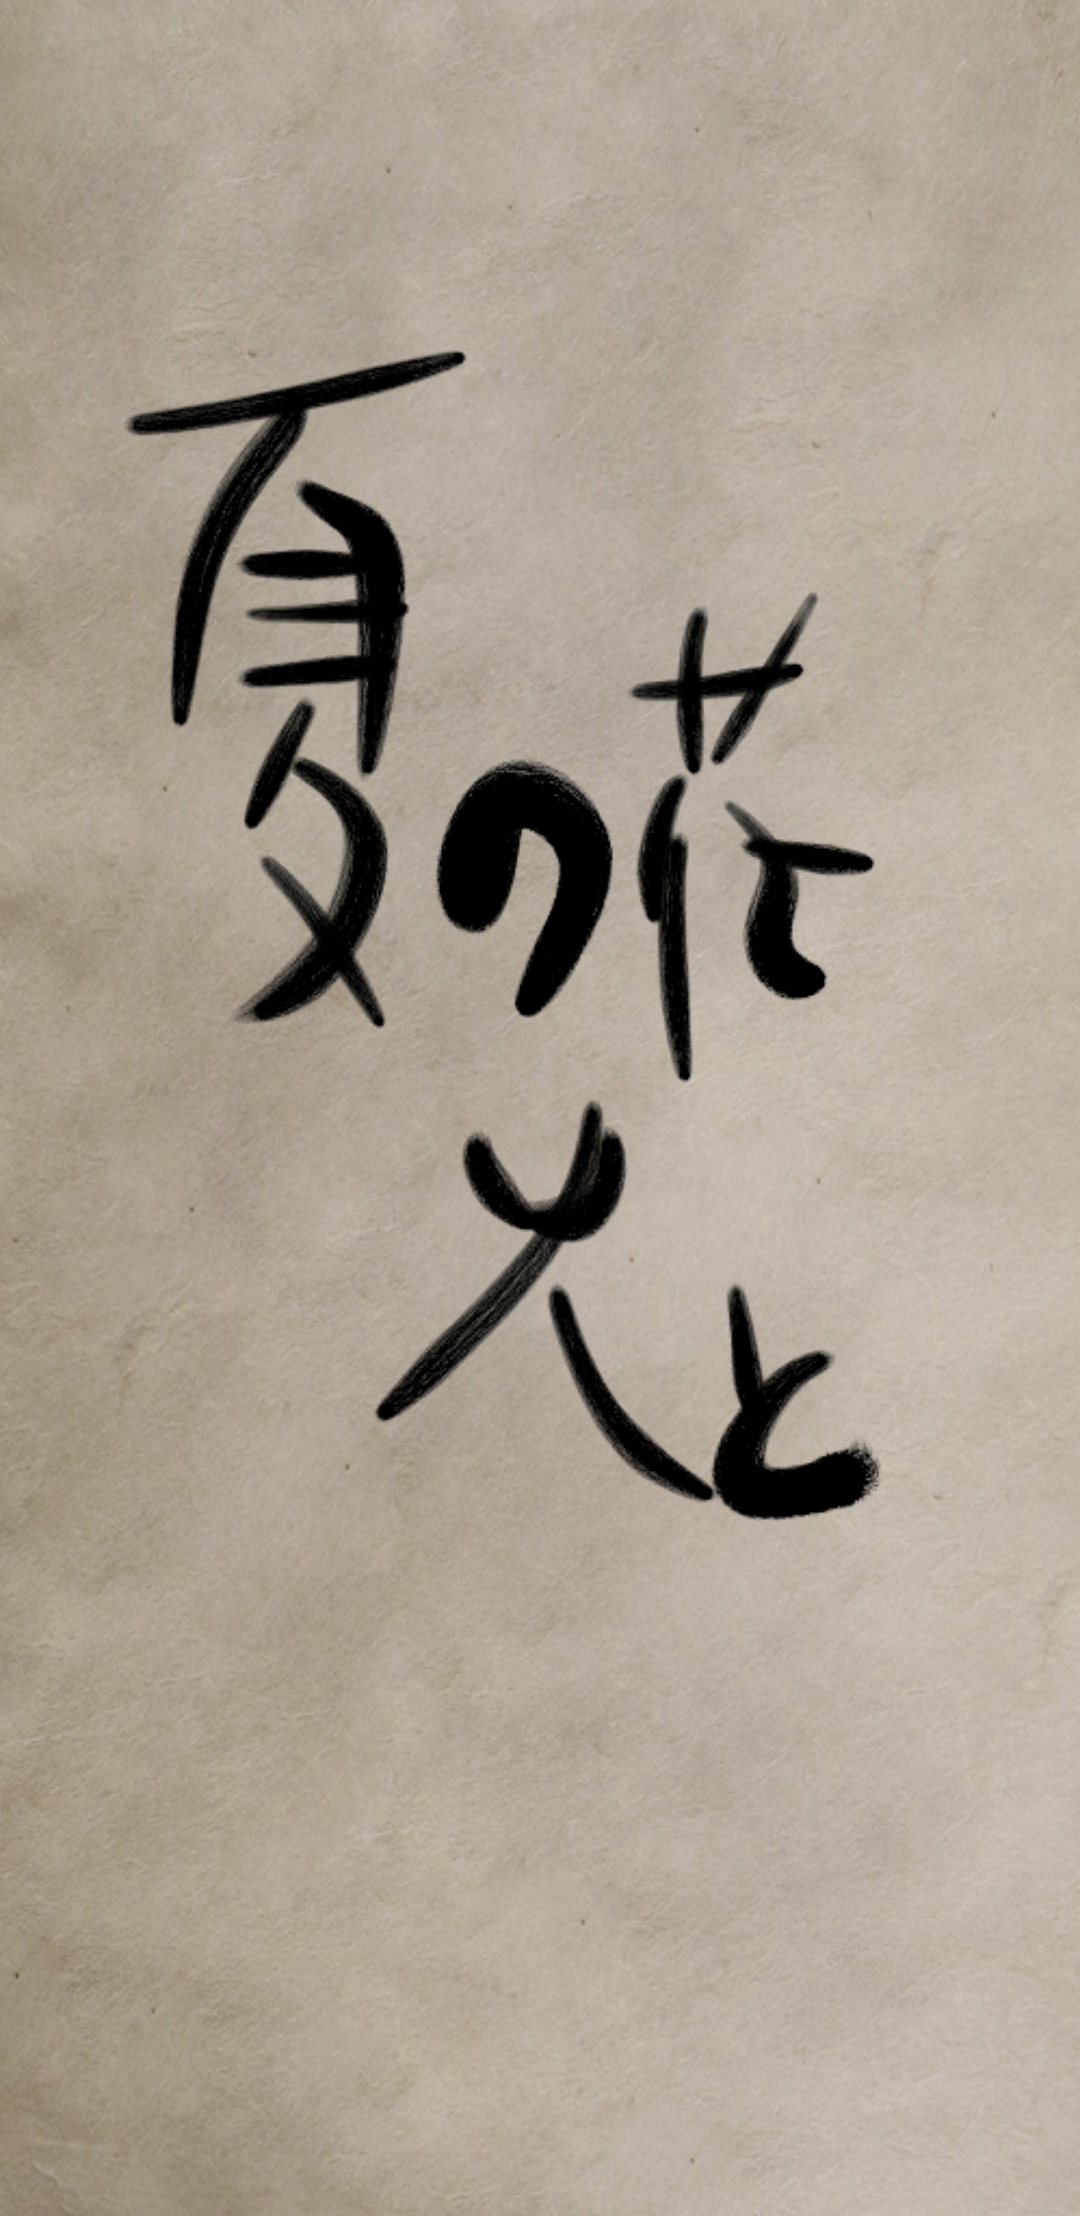 夏の花
火と